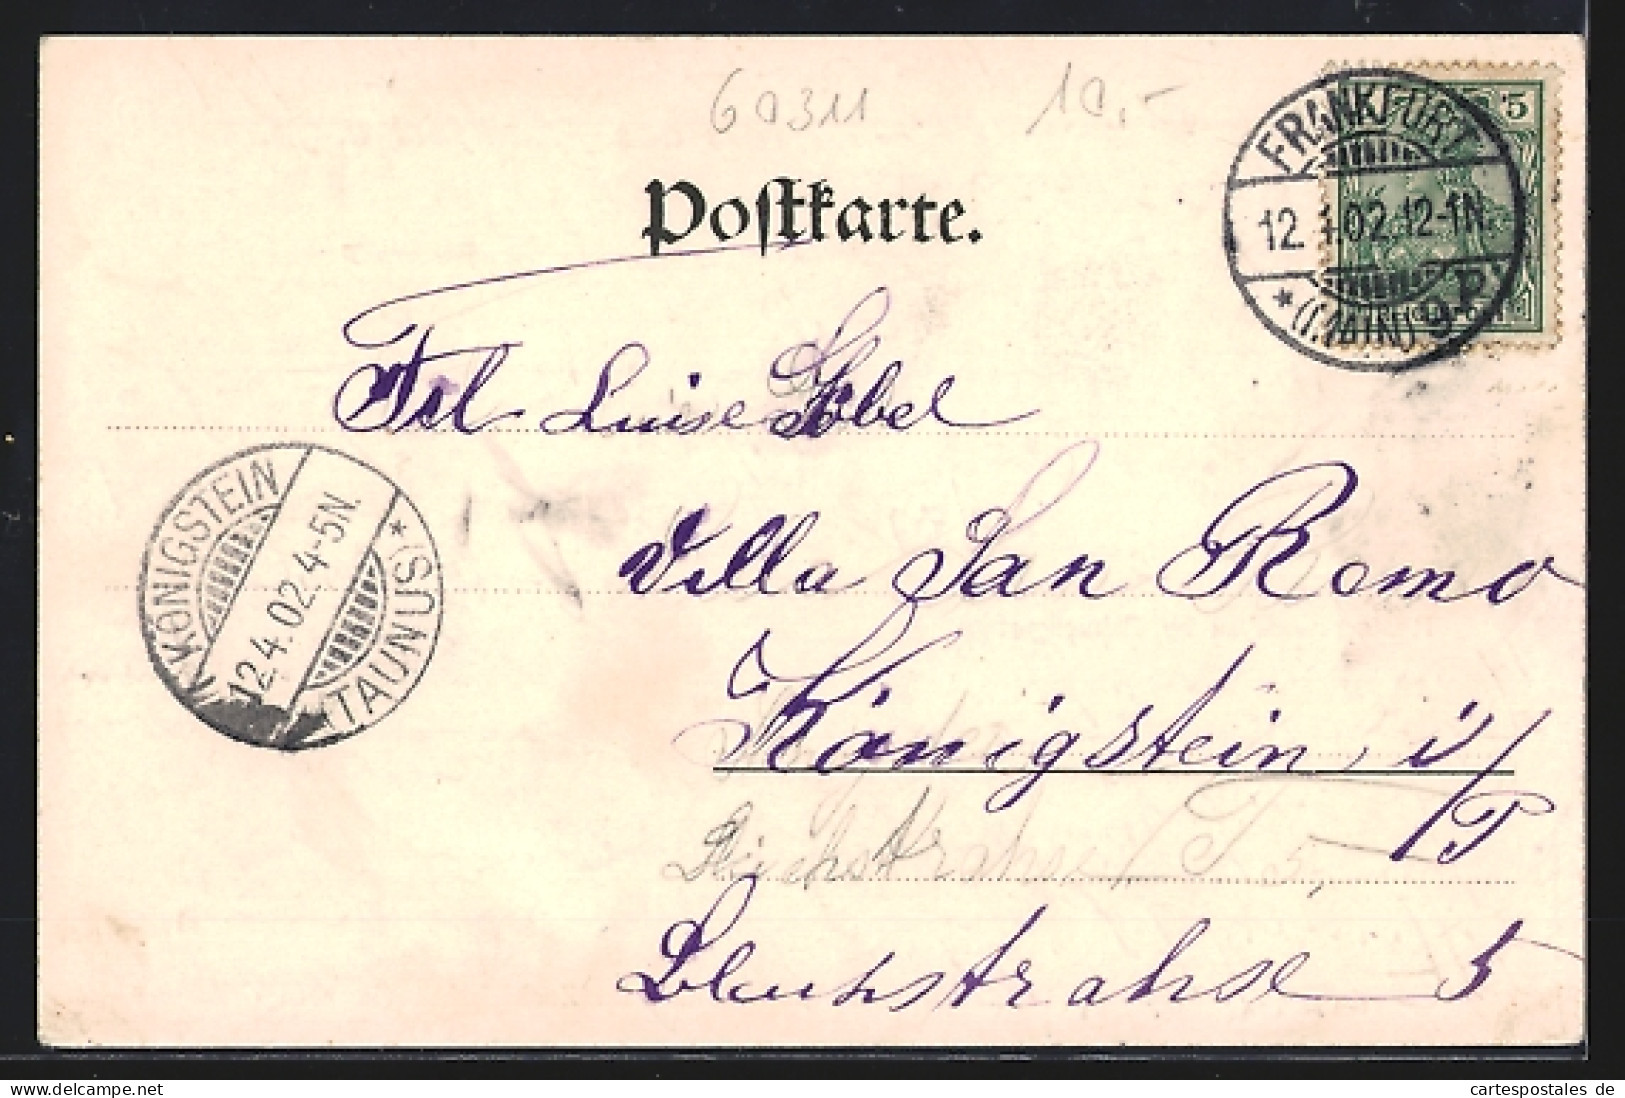 60311 10,-
Postkarte.
FRANKFURT
12.4.02.12-1N.
* (MAIN) 9 P.
5
Frl Luise Göbel
KÖNIGSTEIN
12.4.02.4-5N.
* (TAUNUS)
Villa San Remo
Königstein i/T
5,
5
cartespostales de